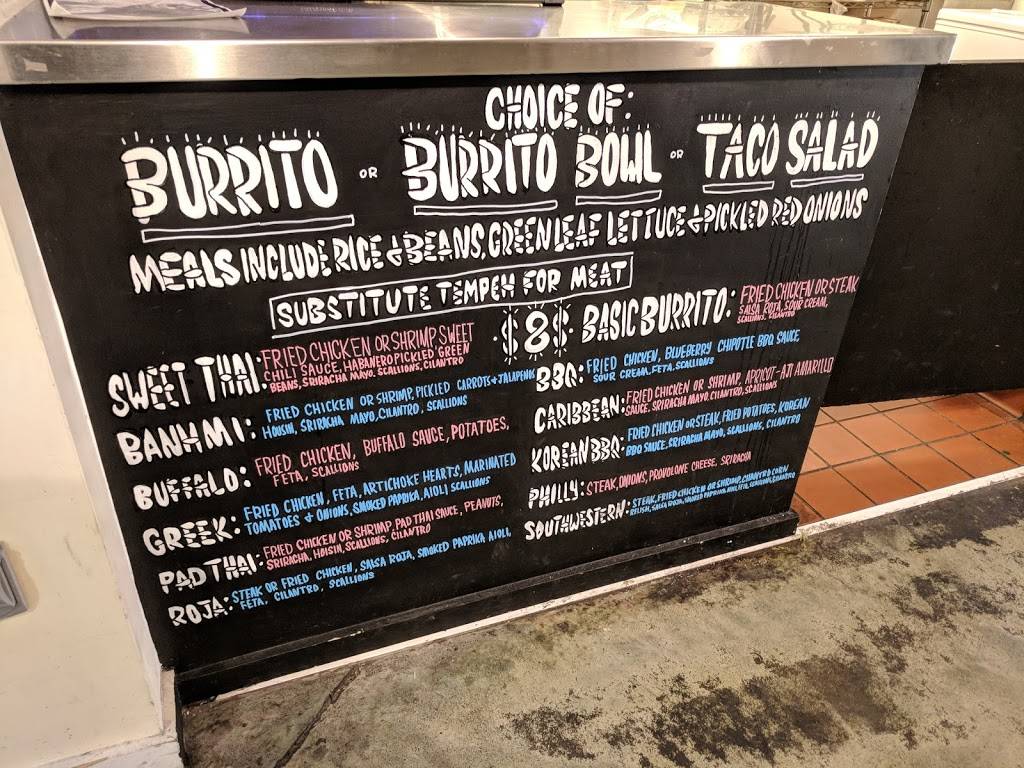 CHOICE OF:
BURRITO OR BURRITO BOWL OR TACO SALAD
MEALS INCLUDE RICE & BEANS, GREEN LEAF LETTUCE & PICKLED RED ONIONS
SUBSTITUTE TEMPEH FOR MEAT
$8$
SWEET THAI: FRIED CHICKEN OR SHRIMP, SWEET
CHILI SAUCE, HABANERO PICKLED GREEN
BEANS, SRIRACHA MAYO, SCALLIONS, CILANTRO
BANH MI: FRIED CHICKEN OR SHRIMP, PICKLED CARROTS + JALAPENO
HOISIN, SRIRACHA MAYO, CILANTRO, SCALLIONS
BUFFALO: FRIED CHICKEN, BUFFALO SAUCE, POTATOES,
FETA, SCALLIONS
GREEK: FRIED CHICKEN, FETA, ARTICHOKE HEARTS, MARINATED
TOMATOES & ONIONS, SMOKED PAPRIKA, AIOLI SCALLIONS
PAD THAI: FRIED CHICKEN OR SHRIMP, PAD THAI SAUCE, PEANUTS,
SRIRACHA, HOISIN, SCALLIONS, CILANTRO
ROJA: STEAK OR FRIED CHICKEN, SALSA ROJA, SMOKED PAPRIKA AIOLI,
FETA, CILANTRO, SCALLIONS
BASIC BURRITO: FRIED CHICKEN OR STEAK
SALSA ROJA, SOUR CREAM,
SCALLIONS, CILANTRO
BBQ: FRIED CHICKEN, BLUEBERRY CHIPOTLE BBQ SAUCE,
SOUR CREAM, FETA, SCALLIONS
CARIBBEAN: FRIED CHICKEN OR SHRIMP, APRICOT-AJI AMARILLO
SAUCE, SRIRACHA MAYO, CILANTRO, SCALLIONS
KOREAN BBQ: FRIED CHICKEN OR STEAK, FRIED POTATOES, KOREAN
BBQ SAUCE, SRIRACHA MAYO, SCALLIONS, CILANTRO
PHILLY: STEAK, ONIONS, PROVOLONE CHEESE, SRIRACHA
SOUTHWESTERN: STEAK, FRIED CHICKEN OR SHRIMP, CILANTRO CORN
RELISH, SALSA ROJA, SMOKED PAPRIKA AIOLI, FETA, SCALLIONS, CILANTRO